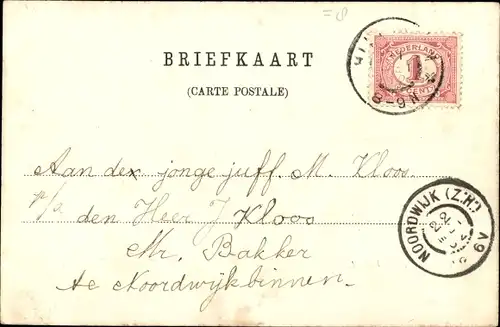 BRIEFKAART
(CARTE POSTALE)
NEDERLAND
1
CENT
8-9N
Aan den jonge juff. M. Kloos
p/a den Heer J Kloos
Mr. Bakker
te Noordwijkbinnen.
NOORDWIJK (Z.H.)
6V